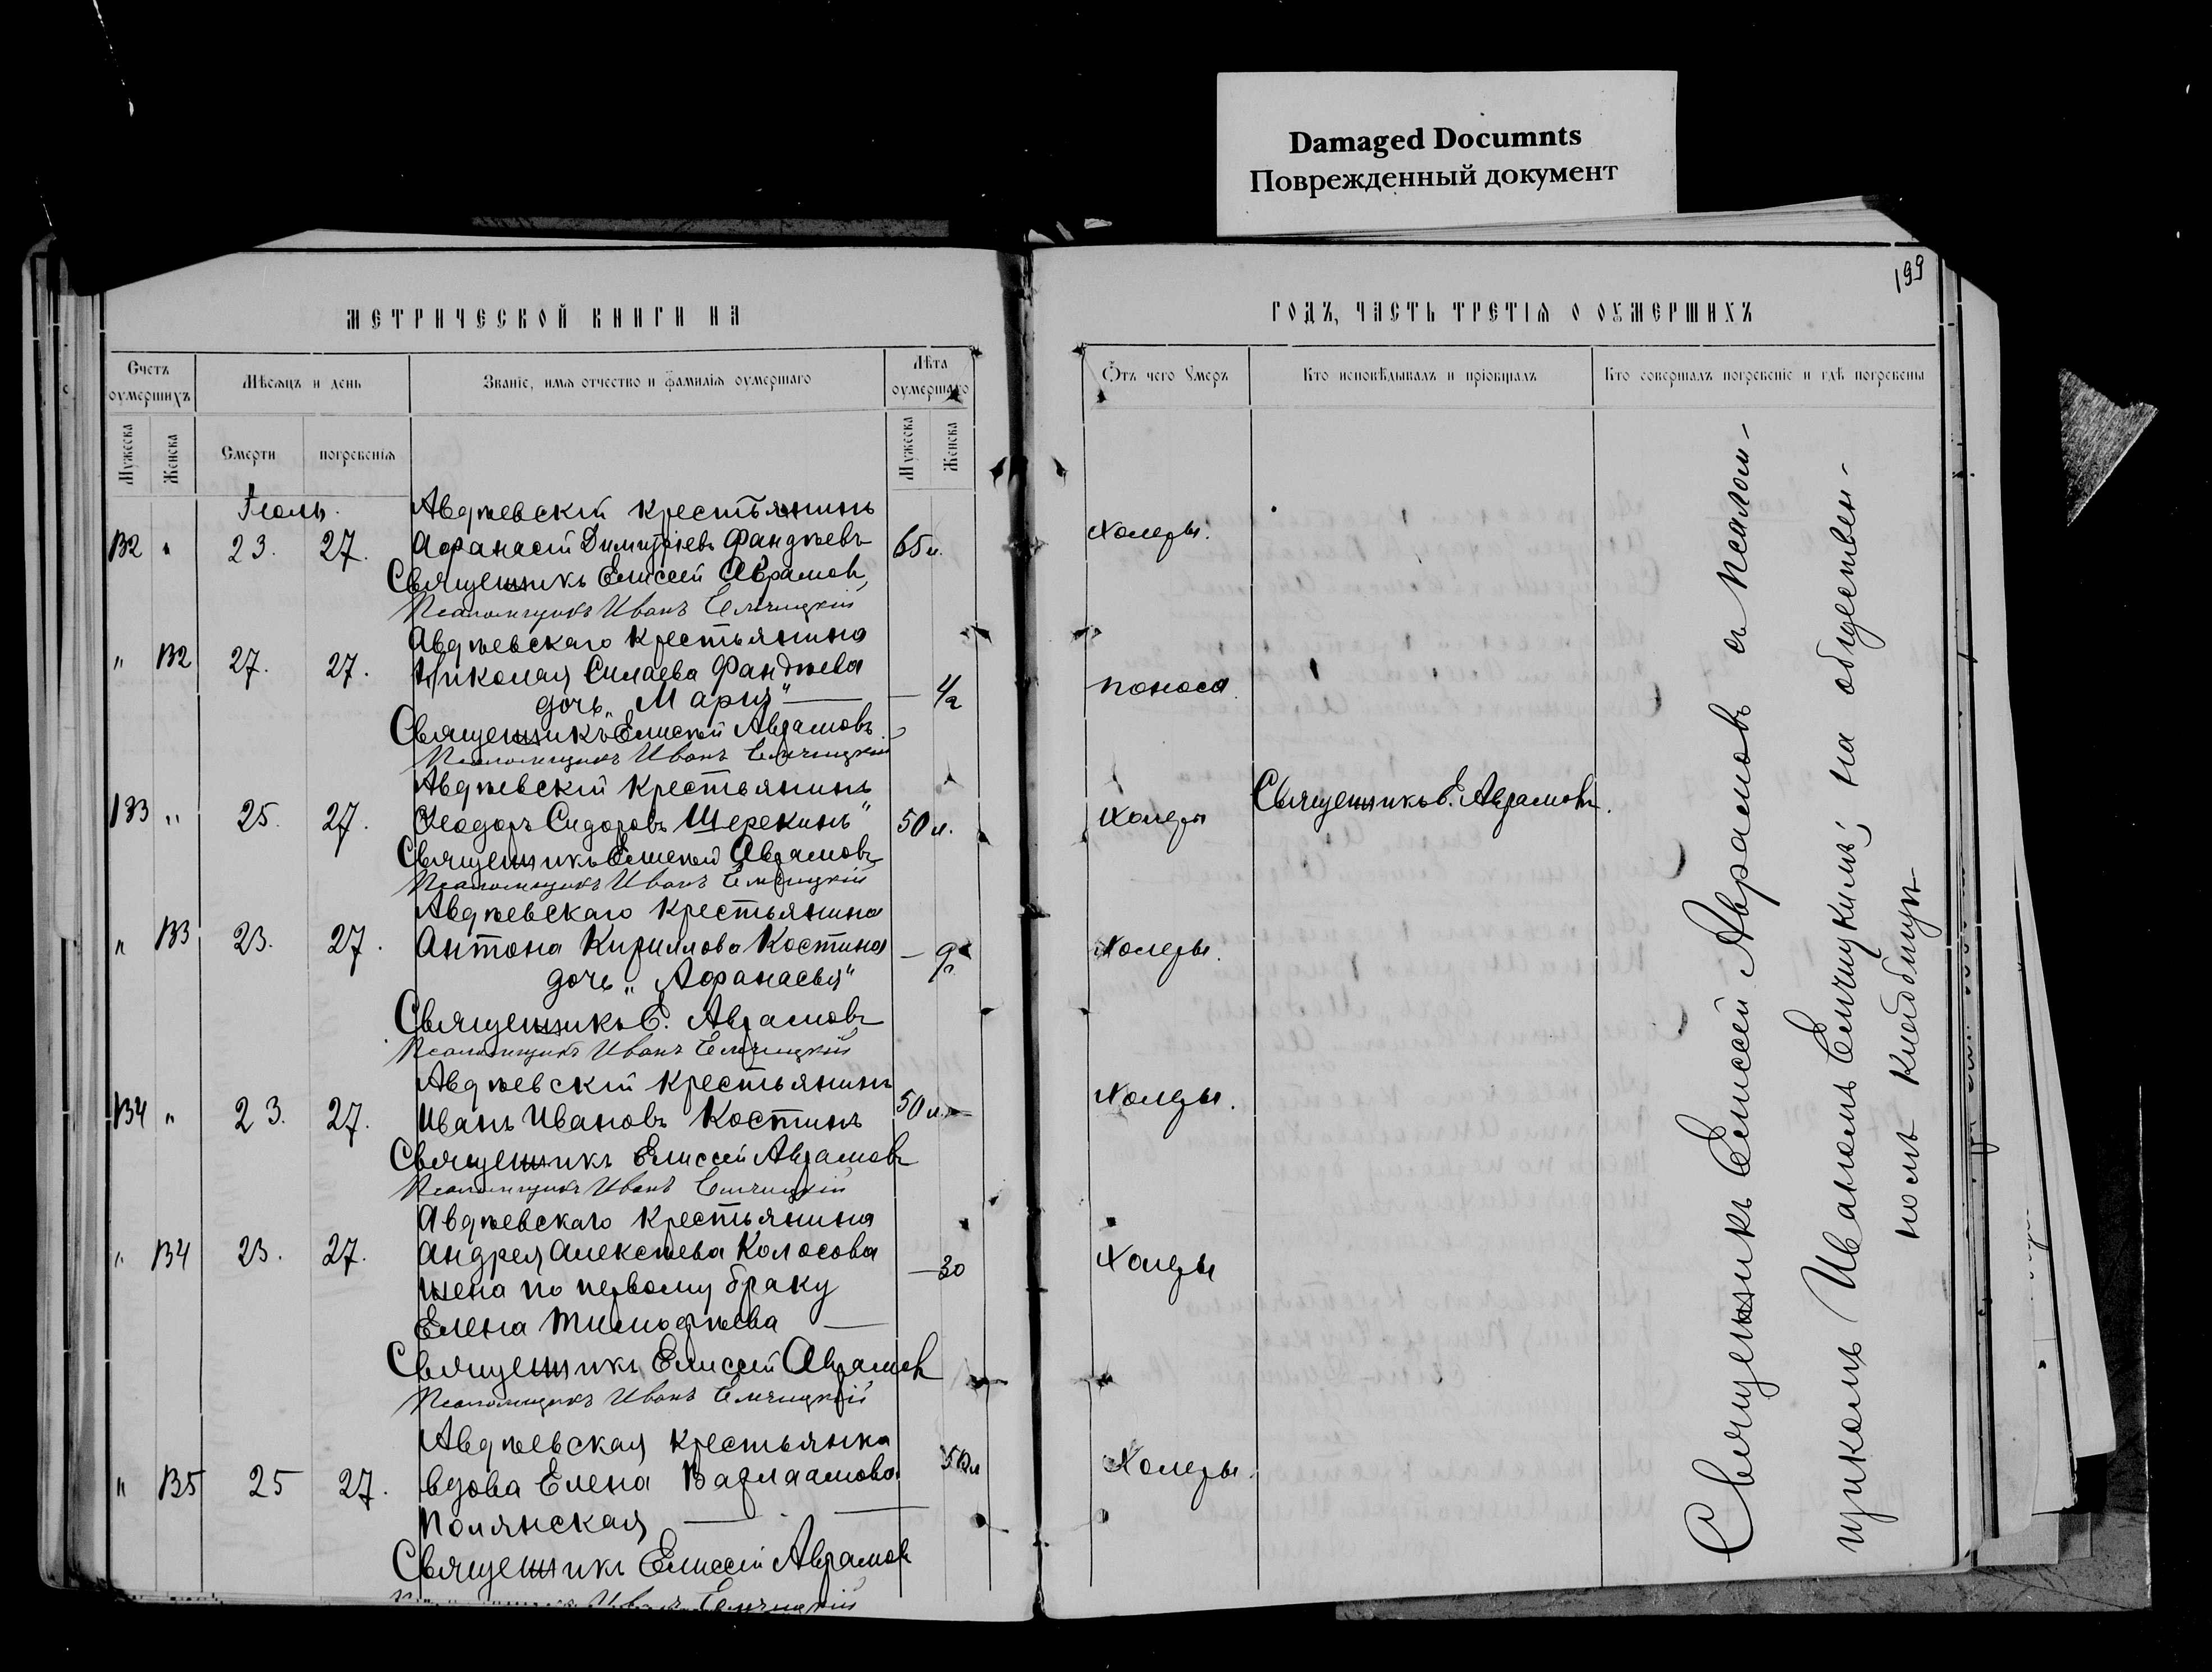 Damaged Documnts
Поврежденный документ
199
МЕТРИЧЕСКОЙ КНИГИ НА
ГОДЪ, ЧАСТЬ ТРЕТІѦ О ОУМЕРШИХЪ
Счетъ оумершихъ
Мѣсѧцъ и день
Званіе, имѧ отчество и фамилія оумершаго
Лѣта оумершаго
Ѿтъ чего Умеръ
Кто исповѣдывалъ и пріобщалъ
Кто совершалъ погребеніе и гдѣ погребены
Мужеска
Женска
Смерти
погребеніѧ
Мужеска
Женска
Іюль.
Авдѣевскій крестьянинъ
132 " 23. 27. Афанасій Димитріевъ Фандѣевъ 65 л. Холеры.
Священникъ Елисей Аврамовъ
Псаломщикъ Иванъ Елчицкій
Авдѣевскаго крестьянина
" 132 27. 27. Николая Силаева Фандѣева
дочь „Марія" — 1/2 поноса.
Священникъ Елисей Аврамовъ
Псаломщикъ Иванъ Елчицкій
Авдѣевскій крестьянинъ
133 " 25. 27. Ѳеодоръ Сидоровъ Шерекинъ" 50 л. Холеры Священникъ Е. Аврамовъ.
Священникъ Елисей Аврамовъ
Псаломщикъ Иванъ Елчицкій
Авдѣевскаго крестьянина
" 133 23. 27. Антона Кириллова Костина — 9 Холеры.
дочь „Афанасья"
Священникъ Е. Аврамовъ
Псаломщикъ Иванъ Елчицкій
Авдѣевскій крестьянинъ
134 " 23. 27. Иванъ Ивановъ Костинъ 50 л. Холеры.
Священникъ Елисей Аврамовъ
Псаломщикъ Иванъ Елчицкій
Авдѣевскаго крестьянина
" 134 23. 27. Андрея Алексѣева Колосова — 30 Холеры
жена по первому браку
Елена Тимофѣева —
Священникъ Елисей Аврамов
Псаломщикъ Иванъ Елчицкій
Авдѣевская крестьянка
" 135 25 27. вдова Елена Варлаамова 50 л Холеры.
Полянская —
Священникъ Елисей Аврамов
Иванъ Елчицкій
Священникъ Елисей Аврамовъ съ псалом-
щикомъ Иваномъ Елчицкимъ; на обществен-
номъ кладбищѣ